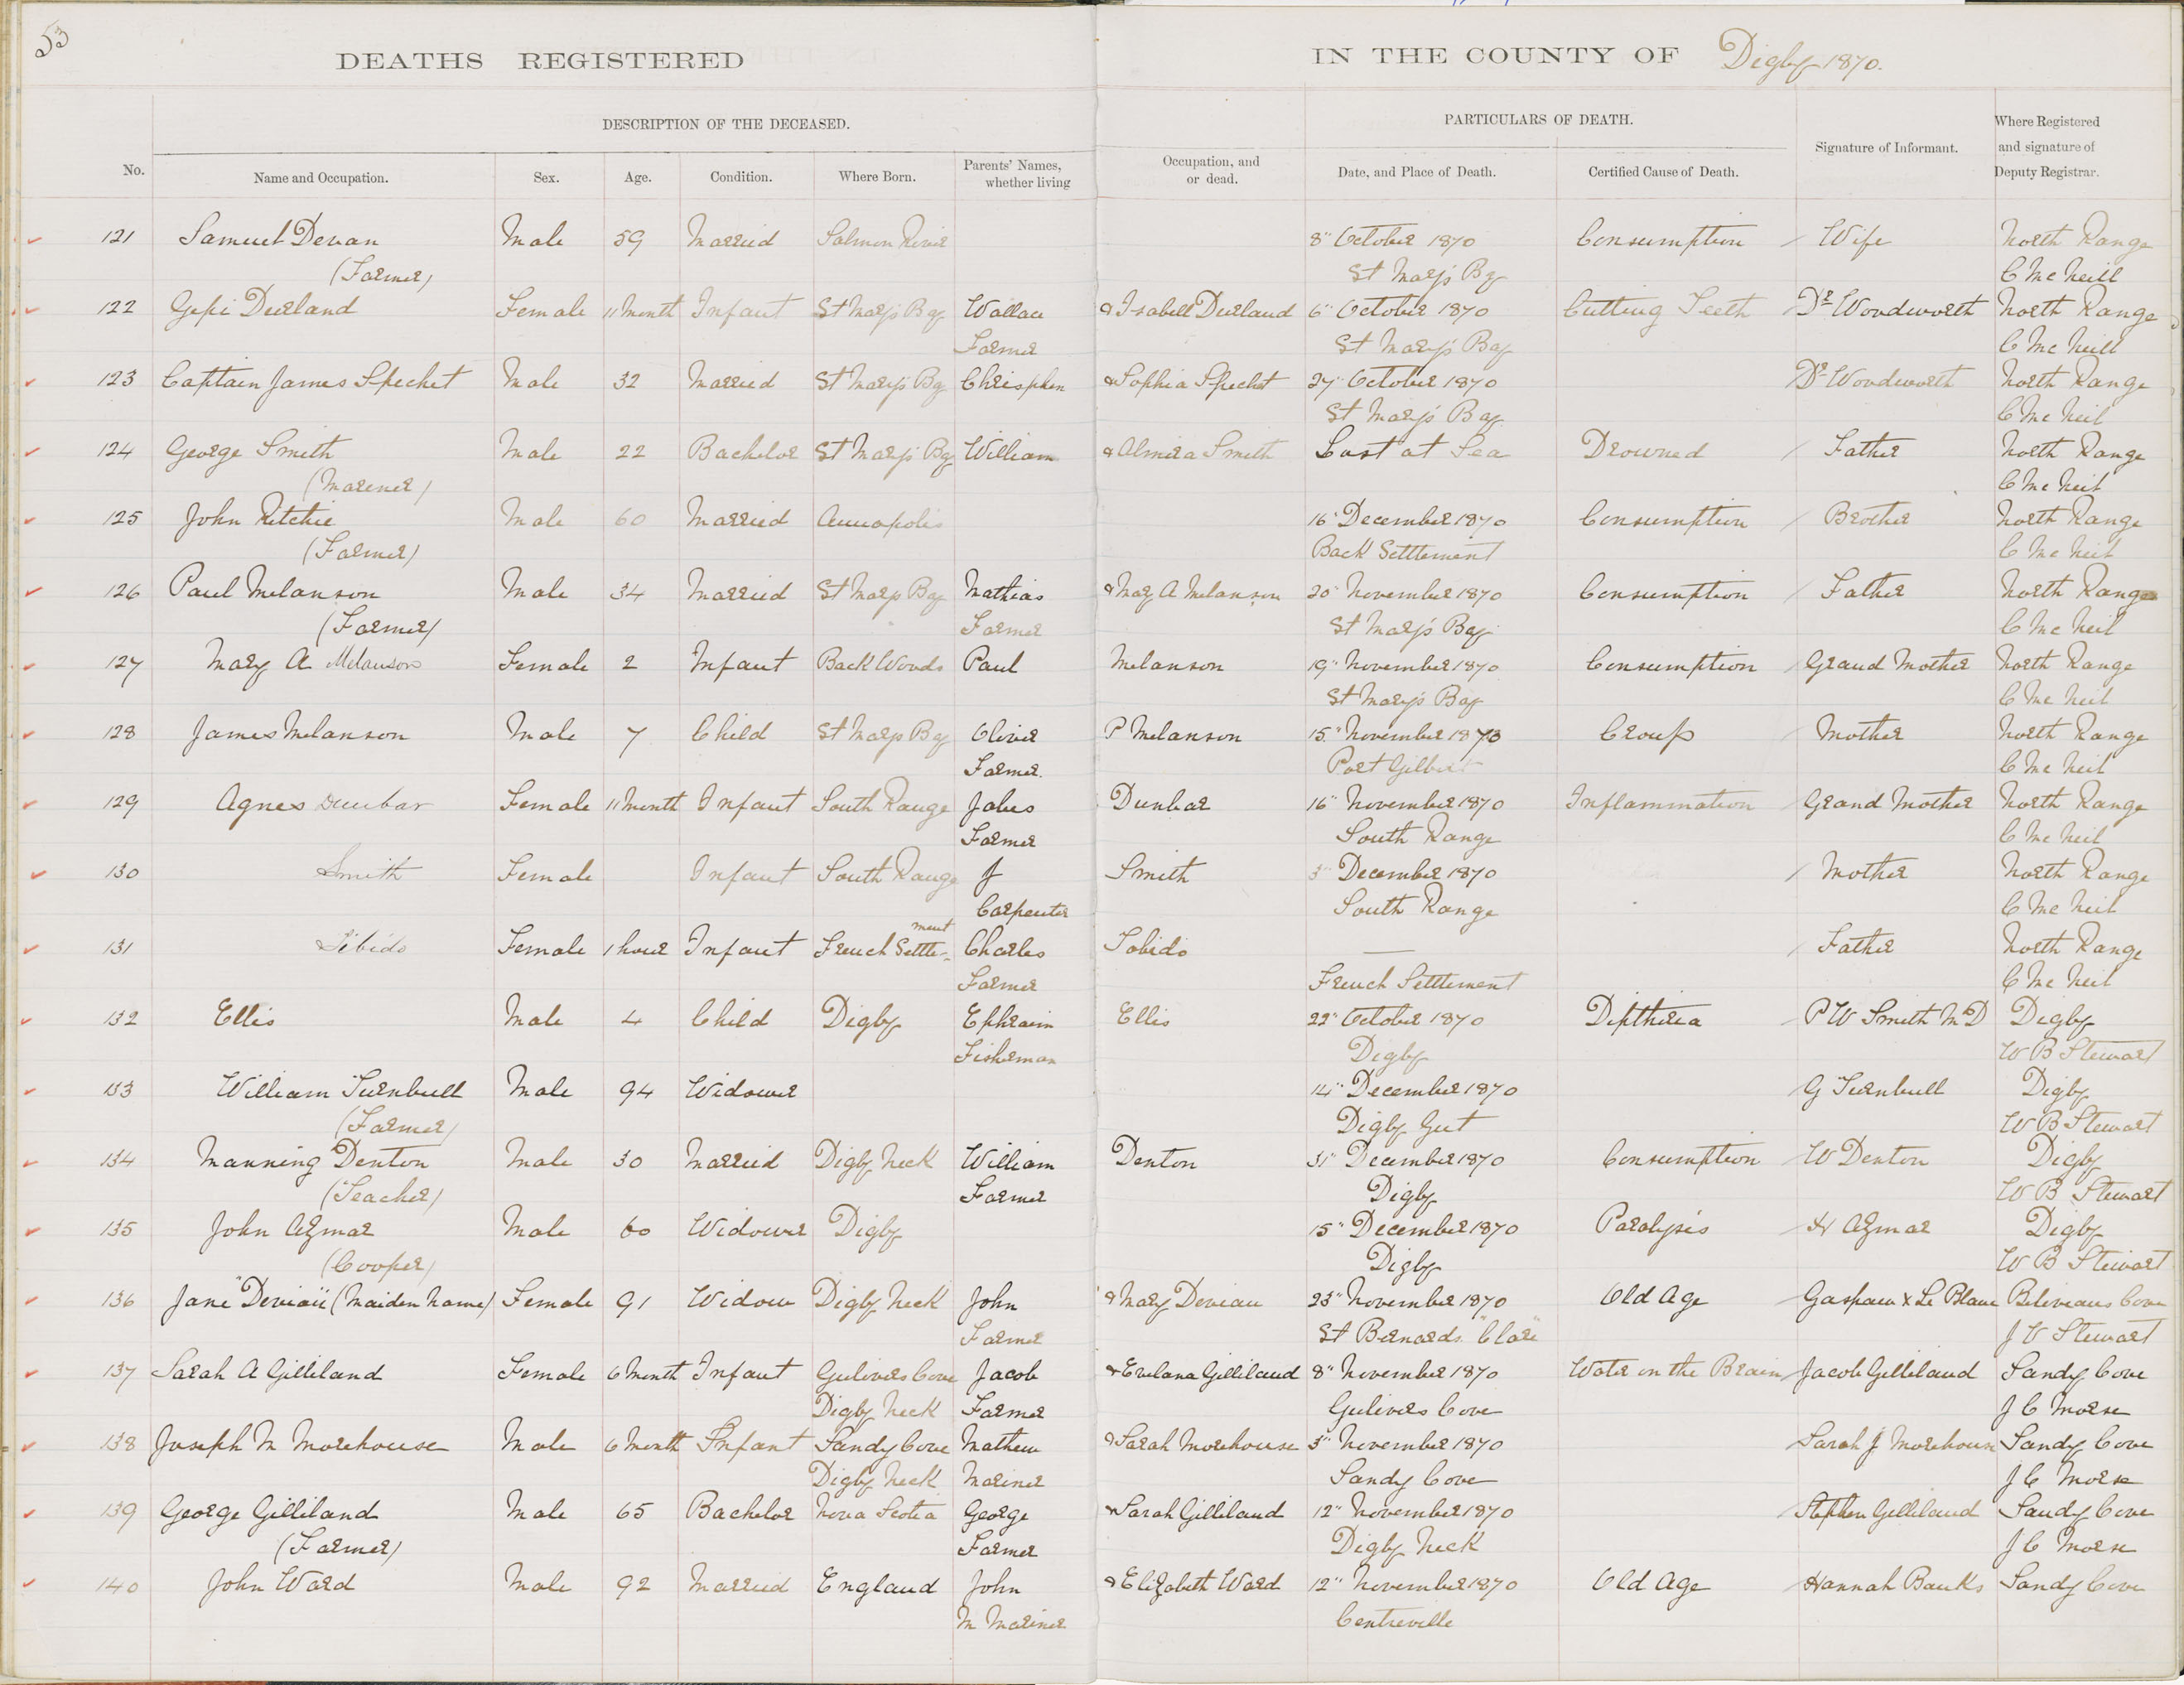 53
DEATHS REGISTERED IN THE COUNTY OF Digby 1870.
DESCRIPTION OF THE DECEASED. PARTICULARS OF DEATH. Where Registered
and signature of
Deputy Registrar.
No. Name and Occupation. Sex. Age. Condition. Where Born. Parents' Names, whether living Occupation, and or dead. Date, and Place of Death. Certified Cause of Death. Signature of Informant.
121 Samuel Devan Male 59 Married Salmon River 8" October 1870 Consumption Wife North Range
(Farmer) St Mary's By C McNeill
122 Durland Female 11 Month Infant St Mary's Bay Wallace & Isabell Durland 6" October 1870 Cutting Teeth Dr Woodworth North Range
Farmer St Mary's Bay C McNeill
123 Captain James Spechet Male 32 Married St Mary's By Chrisphen & Sophia Specht 27" October 1870 Dr Woodworth North Range
St Mary's Bay C McNeil
124 George Smith Male 22 Bachelor St Mary's Bay William & Almira Smith Lost at Sea Drowned Father North Range
(Marener) C McNeil
125 John Ritchie Male 60 Married Annapolis 16" December 1870 Consumption Brother North Range
(Farmer) Back Settlement C McNeil
126 Paul Melanson Male 34 Married St Marys Bay Mathias & Mary A Melanson 20" November 1870 Consumption Father North Range
(Farmer) Farmer St Mary's Bay C McNeil
127 Mary A Melanson Female 2 Infant Back Woods Paul Melanson 19" November 1870 Consumption Grand Mother North Range
St Mary's Bay C McNeil
128 James Melanson Male 7 Child St Marys Bay Oliver P Melanson 15" November 1870 Croup Mother North Range
Farmer. Port Gilbert C McNeil
129 Agnes Dunbar Female 11 Month Infant South Range Jabes Dunbar 16" November 1870 Inflammation Grand Mother North Range
Farmer South Range C McNeil
130 Smith Female Infant South Range J Smith 3" December 1870 Mother North Range
Carpenter South Range C McNeil
131 Sibido Female 1 hour Infant French Settlement Charles Sobido — Father North Range
Farmer French Settlement C McNeil
132 Ellis Male 4 Child Digby Ephraim Ellis 22" October 1870 Diptheria P W Smith M D Digby
Fisherman Digby W B Stewart
133 William Turnbull Male 94 Widower 14" December 1870 G Turnbull Digby
(Farmer) Digby Gut W B Stewart
134 Manning Denton Male 30 Married Digby Neck William Denton 31" December 1870 Consumption W Denton Digby
(Teacher) Farmer Digby W B Stewart
135 John Azmar Male 60 Widower Digby 15" December 1870 Paralysis H Azmar Digby
(Cooper) Digby W B Stewart
136 Jane "Deviau" (Maiden Name) Female 91 Widow Digby Neck John & Mary Deviau 23" November 1870 Old Age Gaspaw x Le Blanc Beliveaus Cove
Farmer St Bernards "Clare" J V Stewart
137 Sarah A Gilliland Female 6 Month Infant Gulivers Cove Jacob & Evelana Gilliland 8" November 1870 Water on the Brain Jacob Gilliland Sandy Cove
Digby Neck Farmer Gulivers Cove J C Morse
138 Joseph M Morehouse Male 6 Month Infant Sandy Cove Mathew & Sarah Morehouse 3" November 1870 Sarah J Morehouse Sandy Cove
Digby Neck Mariner Sandy Cove J C Morse
139 George Gilliland Male 65 Bachelor Nova Scotia George & Sarah Gilliland 12" November 1870 Stephen Gilliland Sandy Cove
(Farmer) Farmer Digby Neck J C Morse
140 John Ward Male 92 Married England John & Elizabeth Ward 12" November 1870 Old Age Hannah Banks Sandy Cove
M Mariner Centreville